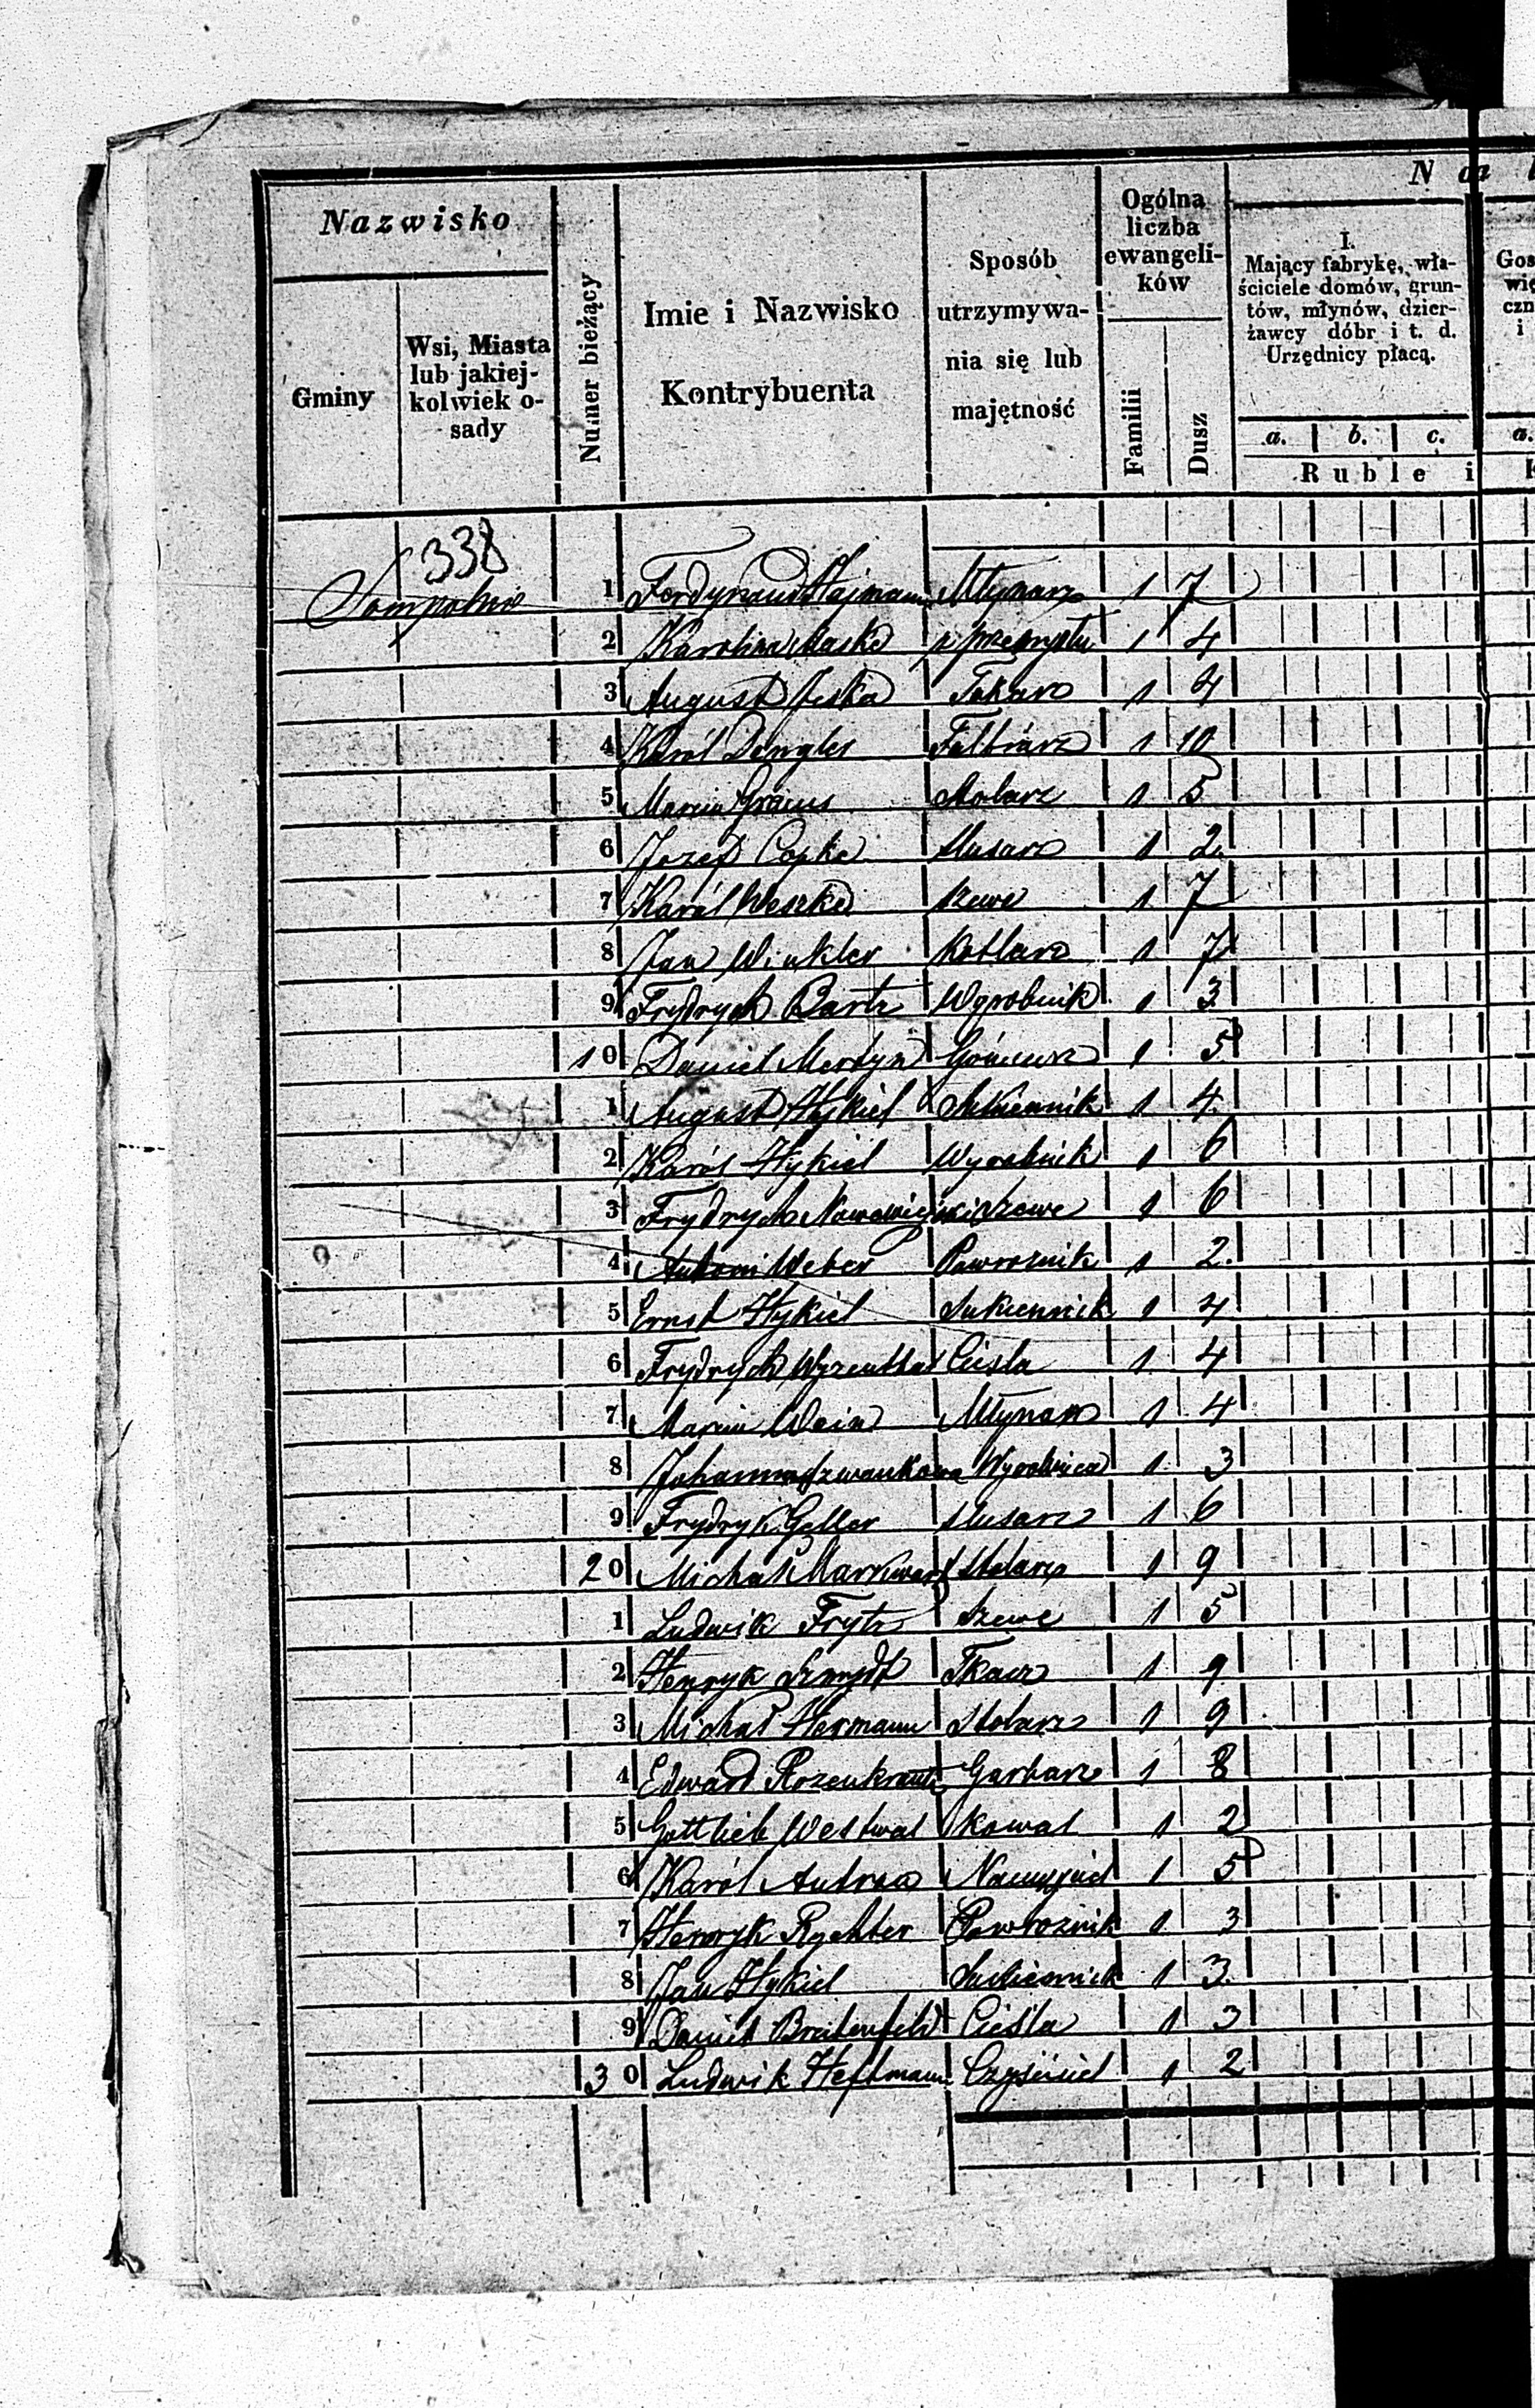 Nazwisko
Gminy
Wsi, Miasta
lub jakiej-
kolwiek o-
sady
Numer bieżący
Imie i Nazwisko
Kontrybuenta
Sposób
utrzymywa-
nia się lub
majętność
Ogólna
liczba
ewangeli-
ków
Familii
Dusz
N
I.
Mający fabrykę, wła-
ściciele domów, grun-
tów, młynów, dzier-
żawcy dóbr i t. d.
Urzędnicy płacą.
a. b. c.
Ruble i
Gos
wię
czn
i
a.
338
Sompolno
1 Ferdynand Hajmann Młynarz 1 7
2 Karolina Maske z przemysłu 1 4
3 August Jeska Tokarz 1 4
4 Karól Dengler Falbiarz 1 10
5 Marcin Stolarz 1 5
6 Jozef Copke slusarz 1 2
7 Karól Weszke szewc 1 7
8 Jan Winkler Kotlarz 1 7
9 Frydrych Bartz Wyrobnik 1 3
10 Daniel Mertyn 1 5
1 August Hykiel Sukiennik 1 4
2 Karól Hykiel Wyrobnik 1 6
3 Frydrych Nowowiejski Szewc 1 6
4 Antoni Weber Powroznik 1 2
5 Ernst Hykiel Sukiennik 1 4
6 Frydrych Wyzenthal Ciesla 1 4
7 Marcin Wein Młynarz 1 4
8 Johanna Szwankowa Wyrobnica 1 3
9 Frydryk Geller slusarz 1 6
20 Michał Markwart Stolarz 1 9
1 Ludwik Frytz Szewc 1 5
2 Henryk Szmydt Tkacz 1 9
3 Michał Hermann Stolarz 1 9
4 Edward Rozenkrantz Garbarz 1 8
5 Gottlieb Westwal Kowal 1 2
6 Karól Andrea 1 5
7 Henryk Rychter Powroznik 1 3
8 Jan Hykiel Sukiennik 1 3
9 Daniel Breitenfeld Cieśla 1 3
30 Ludwik Heftmann Czyściciel 1 2